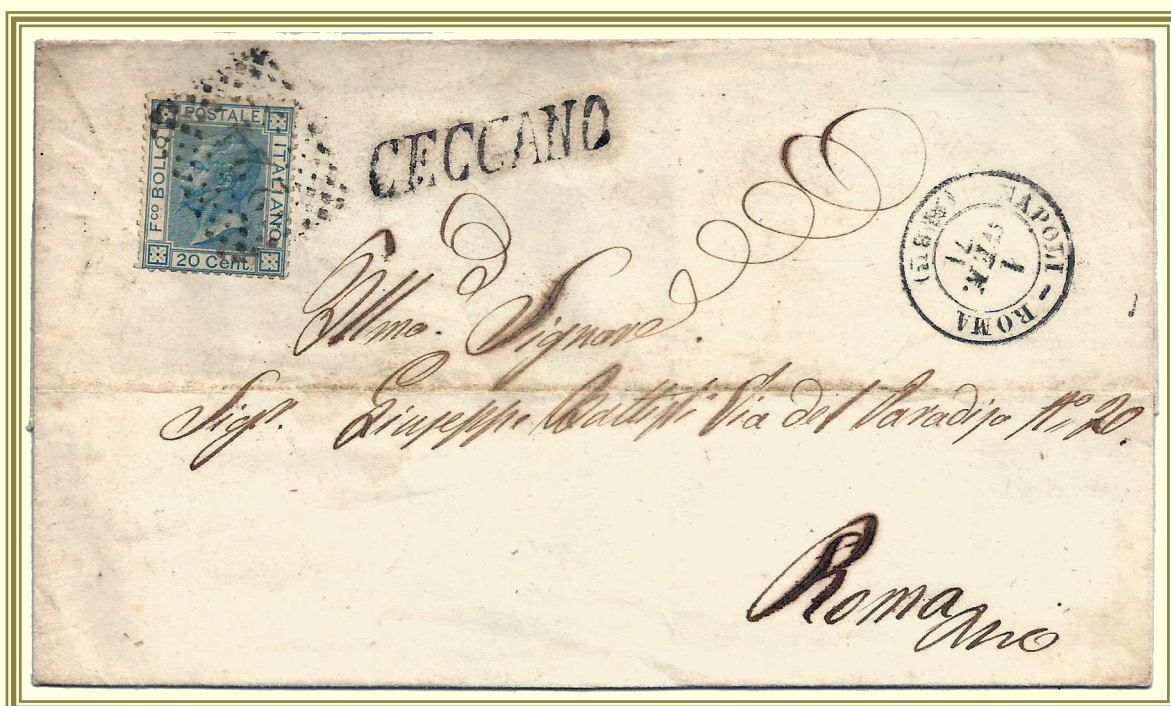 Fco BOLLO POSTALE ITALIANO
20 Cent.
CECCANO
NAPOLI - ROMA
1
71
Illmo. Signore.
Sigr. Giuseppe Via del Paradiso No 20.
Roma